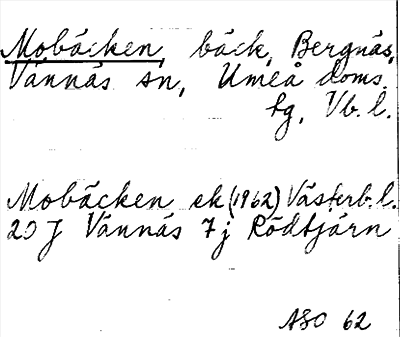 Mobäcken, bäck, Bergnäs,
Vännäs sn, Umeå doms.
hg, Vb. l.
Mobäcken ek (1962) Västerb. l.
20 J Vännäs 7 j Rödtjärn
ASO 62